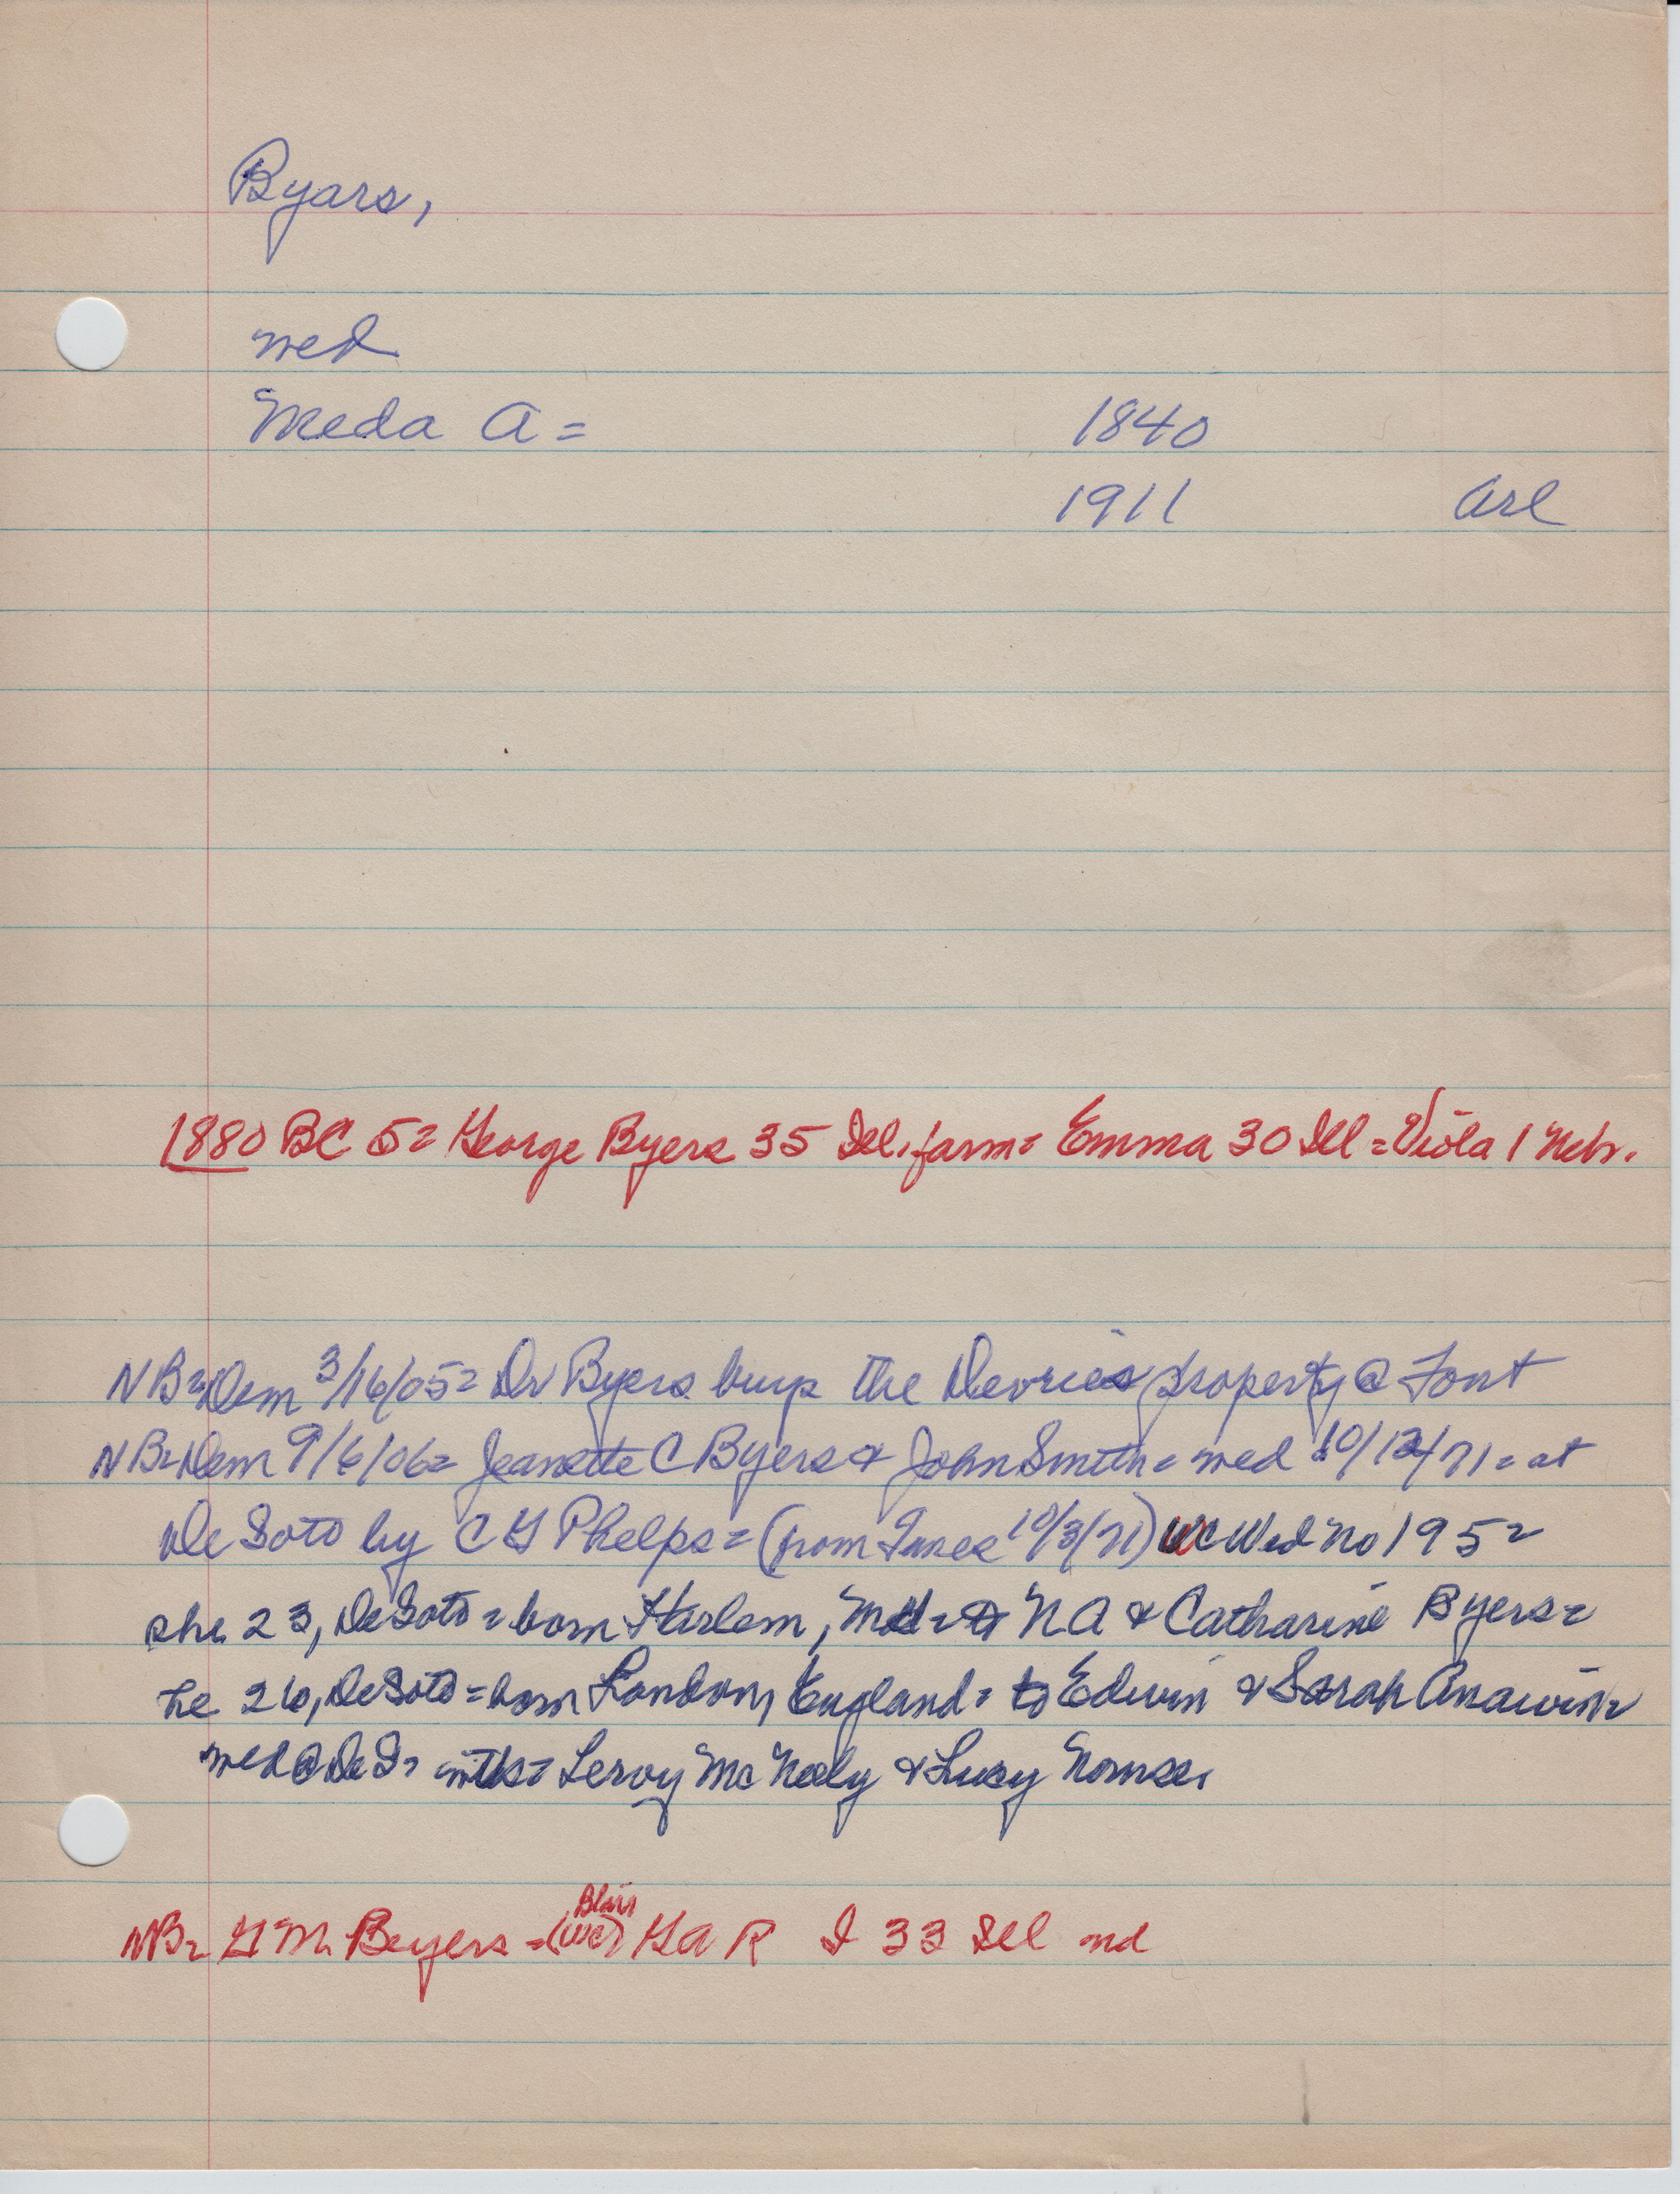 Byars,
wed
Meda A = 1840
1911 Arl
1880 BC 5= George Byers 35 Ill. farm= Emma 30 Ill = Viola 1 Nebr.
NB=Dem 3/16/05= Dr Byers buys the Devries property @ Font
NB=Dem 9/6/06= Jeanette C Byers & John Smith= wed 10/12/71= at
DeSoto by C G Phelps= (from 10/3/71) WC Wed No 195=
she 23, DeSoto= born Harlem, NA & Catharine Byers=
he 26, DeSoto= born London, England= to Edwin & Sarah
wed @ DeS= Leroy McNeely & Lucy
NB= G M. Beyers =(WC) Blair GAR I 33 Ill nd